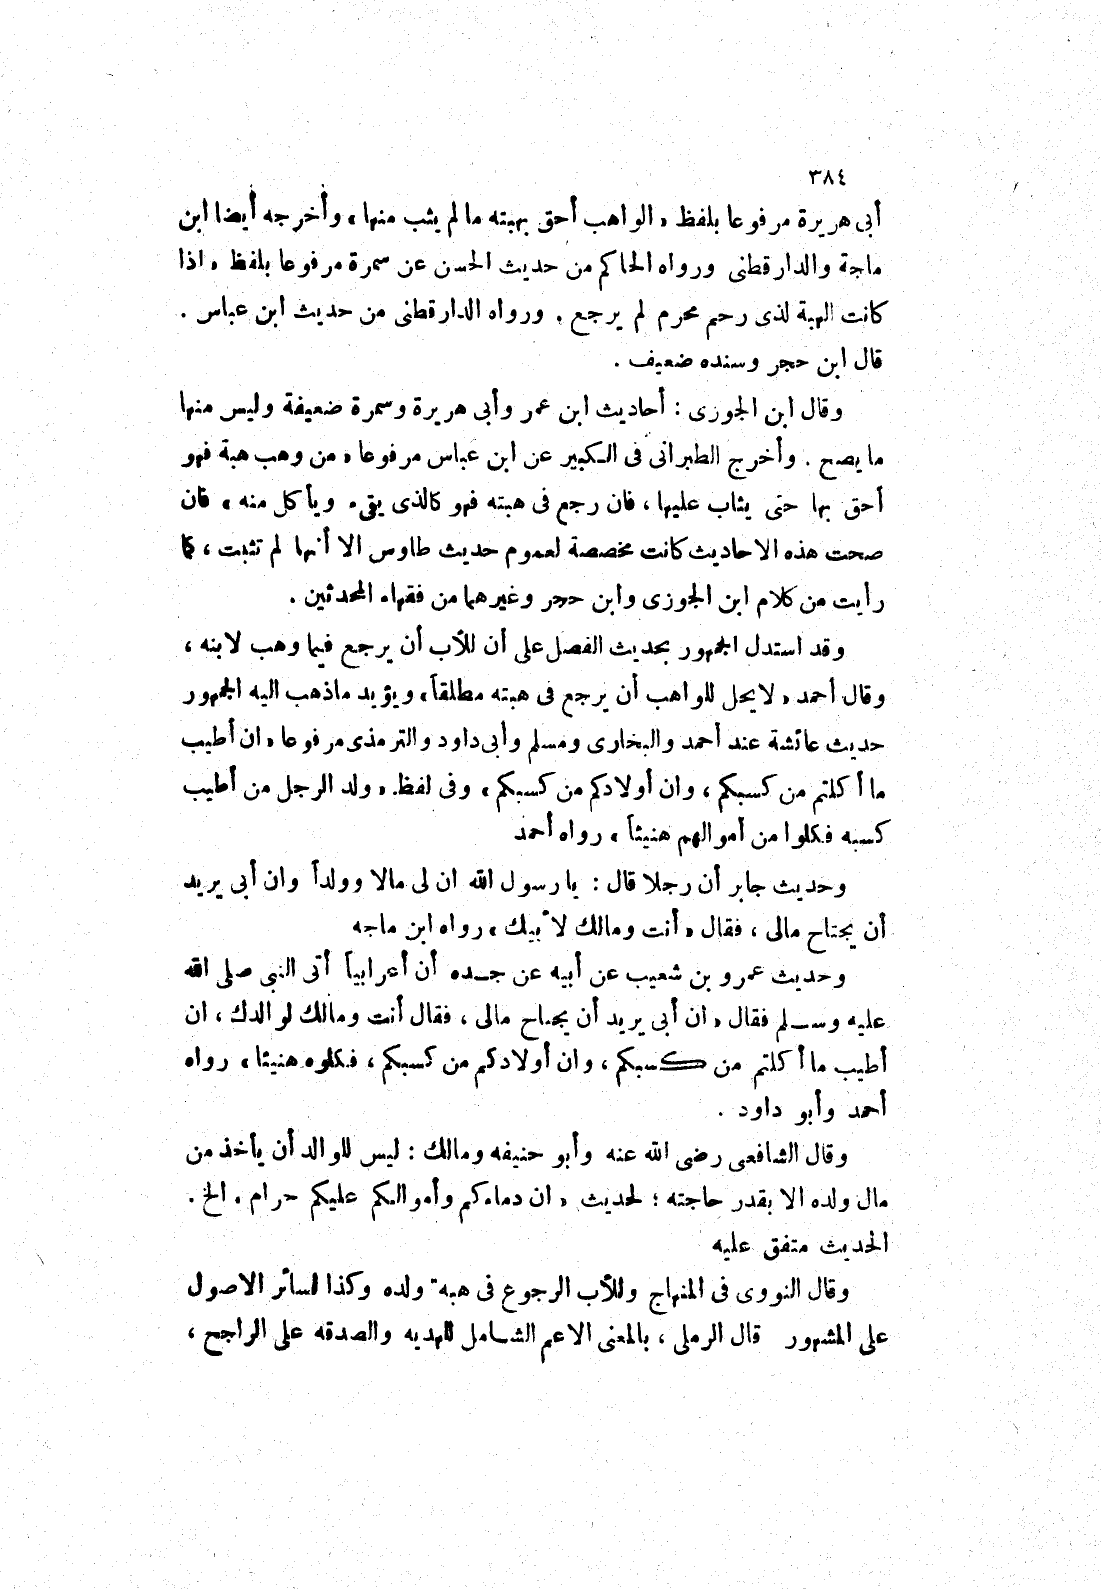 ٣٨٤
أبى هريرة مرفوعا بلفظ « الواهب أحق بهبته ما لم يثب منها » وأخرجه أيضا ابن
ماجة والدارقطنى ورواه الحاكم من حديث الحسن عن سمرة مرفوعا بلفظ « اذا
كانت الهبة لذى رحم محرم لم يرجع » ورواه الدارقطنى من حديث ابن عباس .
قال ابن حجر وسنده ضعيف .
وقال ابن الجوزى : أحاديث ابن عمر وأبى هريرة وسمرة ضعيفة وليس منها
ما يصح . وأخرج الطبرانى فى الكبير عن ابن عباس مرفوعا « من وهب هبة فهو
أحق بها حتى يثاب عليها ، فان رجع فى هبته فهو كالذى يقىء ويأكل منه » فان
صحت هذه الاحاديث كانت مخصصة لعموم حديث طاوس الا أنها لم تثبت ، كما
رأيت من كلام ابن الجوزى وابن حجر وغيرهما من فقهاء المحدثين .
وقد استدل الجمهور بحديث الفصل على أن للأب أن يرجع فيما وهب لابنه ،
وقال أحمد « لا يحل للواهب أن يرجع فى هبته مطلقاً » ويؤيد ماذهب اليه الجمهور
حديث عائشة عند أحمد والبخارى ومسلم وأبى داود والترمذى مرفوعا « ان أطيب
ما أكلتم من كسبكم ، وان أولادكم من كسبكم » وفى لفظ « ولد الرجل من أطيب
كسبه فكلوا من أموالهم هنيئاً » رواه أحمد
وحديث جابر أن رجلا قال : يا رسول الله ان لى مالا وولداً وان أبى يريد
أن يجتاح مالى ، فقال « أنت ومالك لأبيك » رواه ابن ماجه
وحديث عمرو بن شعيب عن أبيه عن جده أن أعرابياً أتى النبى صلى الله
عليه وسلم فقال « ان أبى يريد أن يجتاح مالى ، فقال أنت ومالك لوالدك ، ان
أطيب ما أكلتم من كسبكم ، وان أولادكم من كسبكم ، فكلوه هنيئا » رواه
أحمد وأبو داود .
وقال الشافعى رضى الله عنه وأبو حنيفه ومالك : ليس للوالد أن يأخذ من
مال ولده الا بقدر حاجته ؛ لحديث « ان دماءكم وأموالكم عليكم حرام » الخ .
الحديث متفق عليه
وقال النووى فى المنهاج وللأب الرجوع فى هبة ولده وكذا لسائر الاصول
على المشهور قال الرملى ، بالمعنى الاعم الشامل للهديه والصدقه على الراجح ،